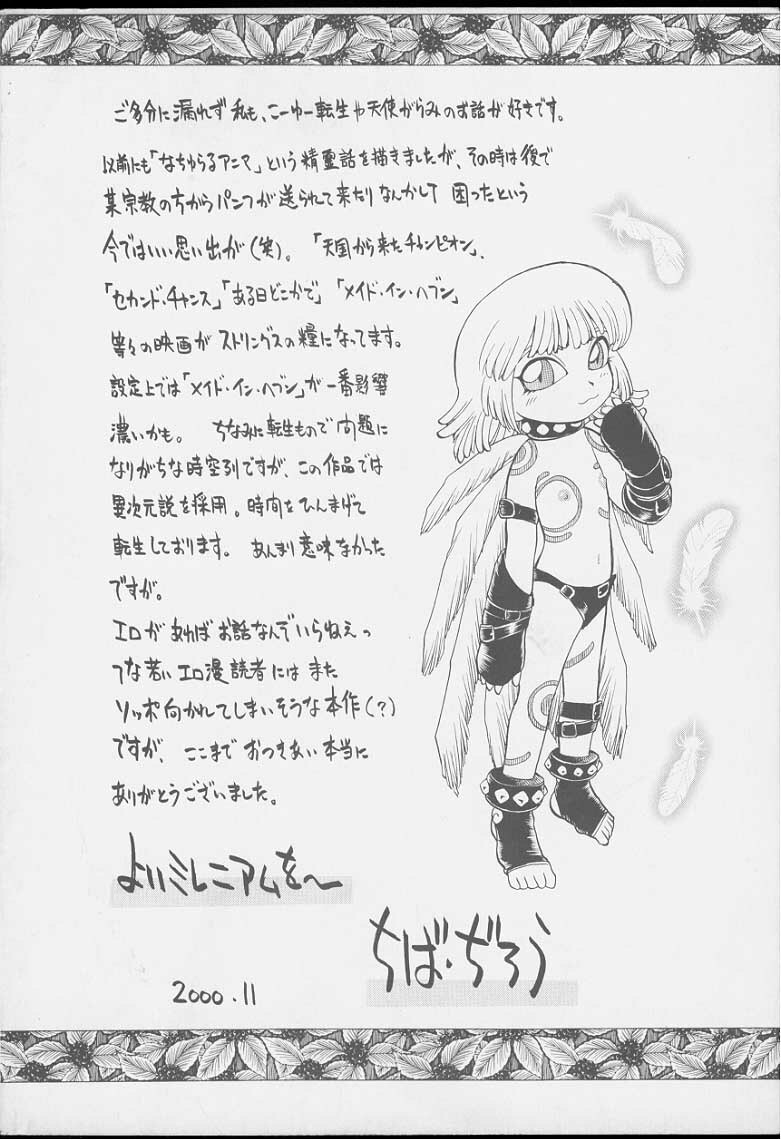 ご多分に漏れず私も、こーゆー転生や天使がらみのお話が好きです。
以前にも「なちゅらるアニマ」という精霊話を描きましたが、その時は後で
某宗教の方からパンフが送られて来たりなんかして 困ったという
今ではいい思い出が(笑)。 「天国から来たチャンピオン」、
「セカンド・チャンス」「ある日どこかで」「メイド・イン・ヘブン」
等々の映画がストリングスの糧になってます。
設定上では「メイド・イン・ヘブン」が一番影響
濃いかも。 ちなみに転生もので問題に
なりがちな時空列ですが、この作品では
異次元説を採用。時間をひんまげて
転生しております。 あんまり意味なかった
ですが。
エロがあればお話なんていらねえっ
つな若いエロ漫読者にはまた
ソッポ向かれてしまいそうな本作(?)
ですが、ここまでおつきあい本当に
ありがとうございました。
よいミレニアムを〜
ちば・ぢろう
2000.11